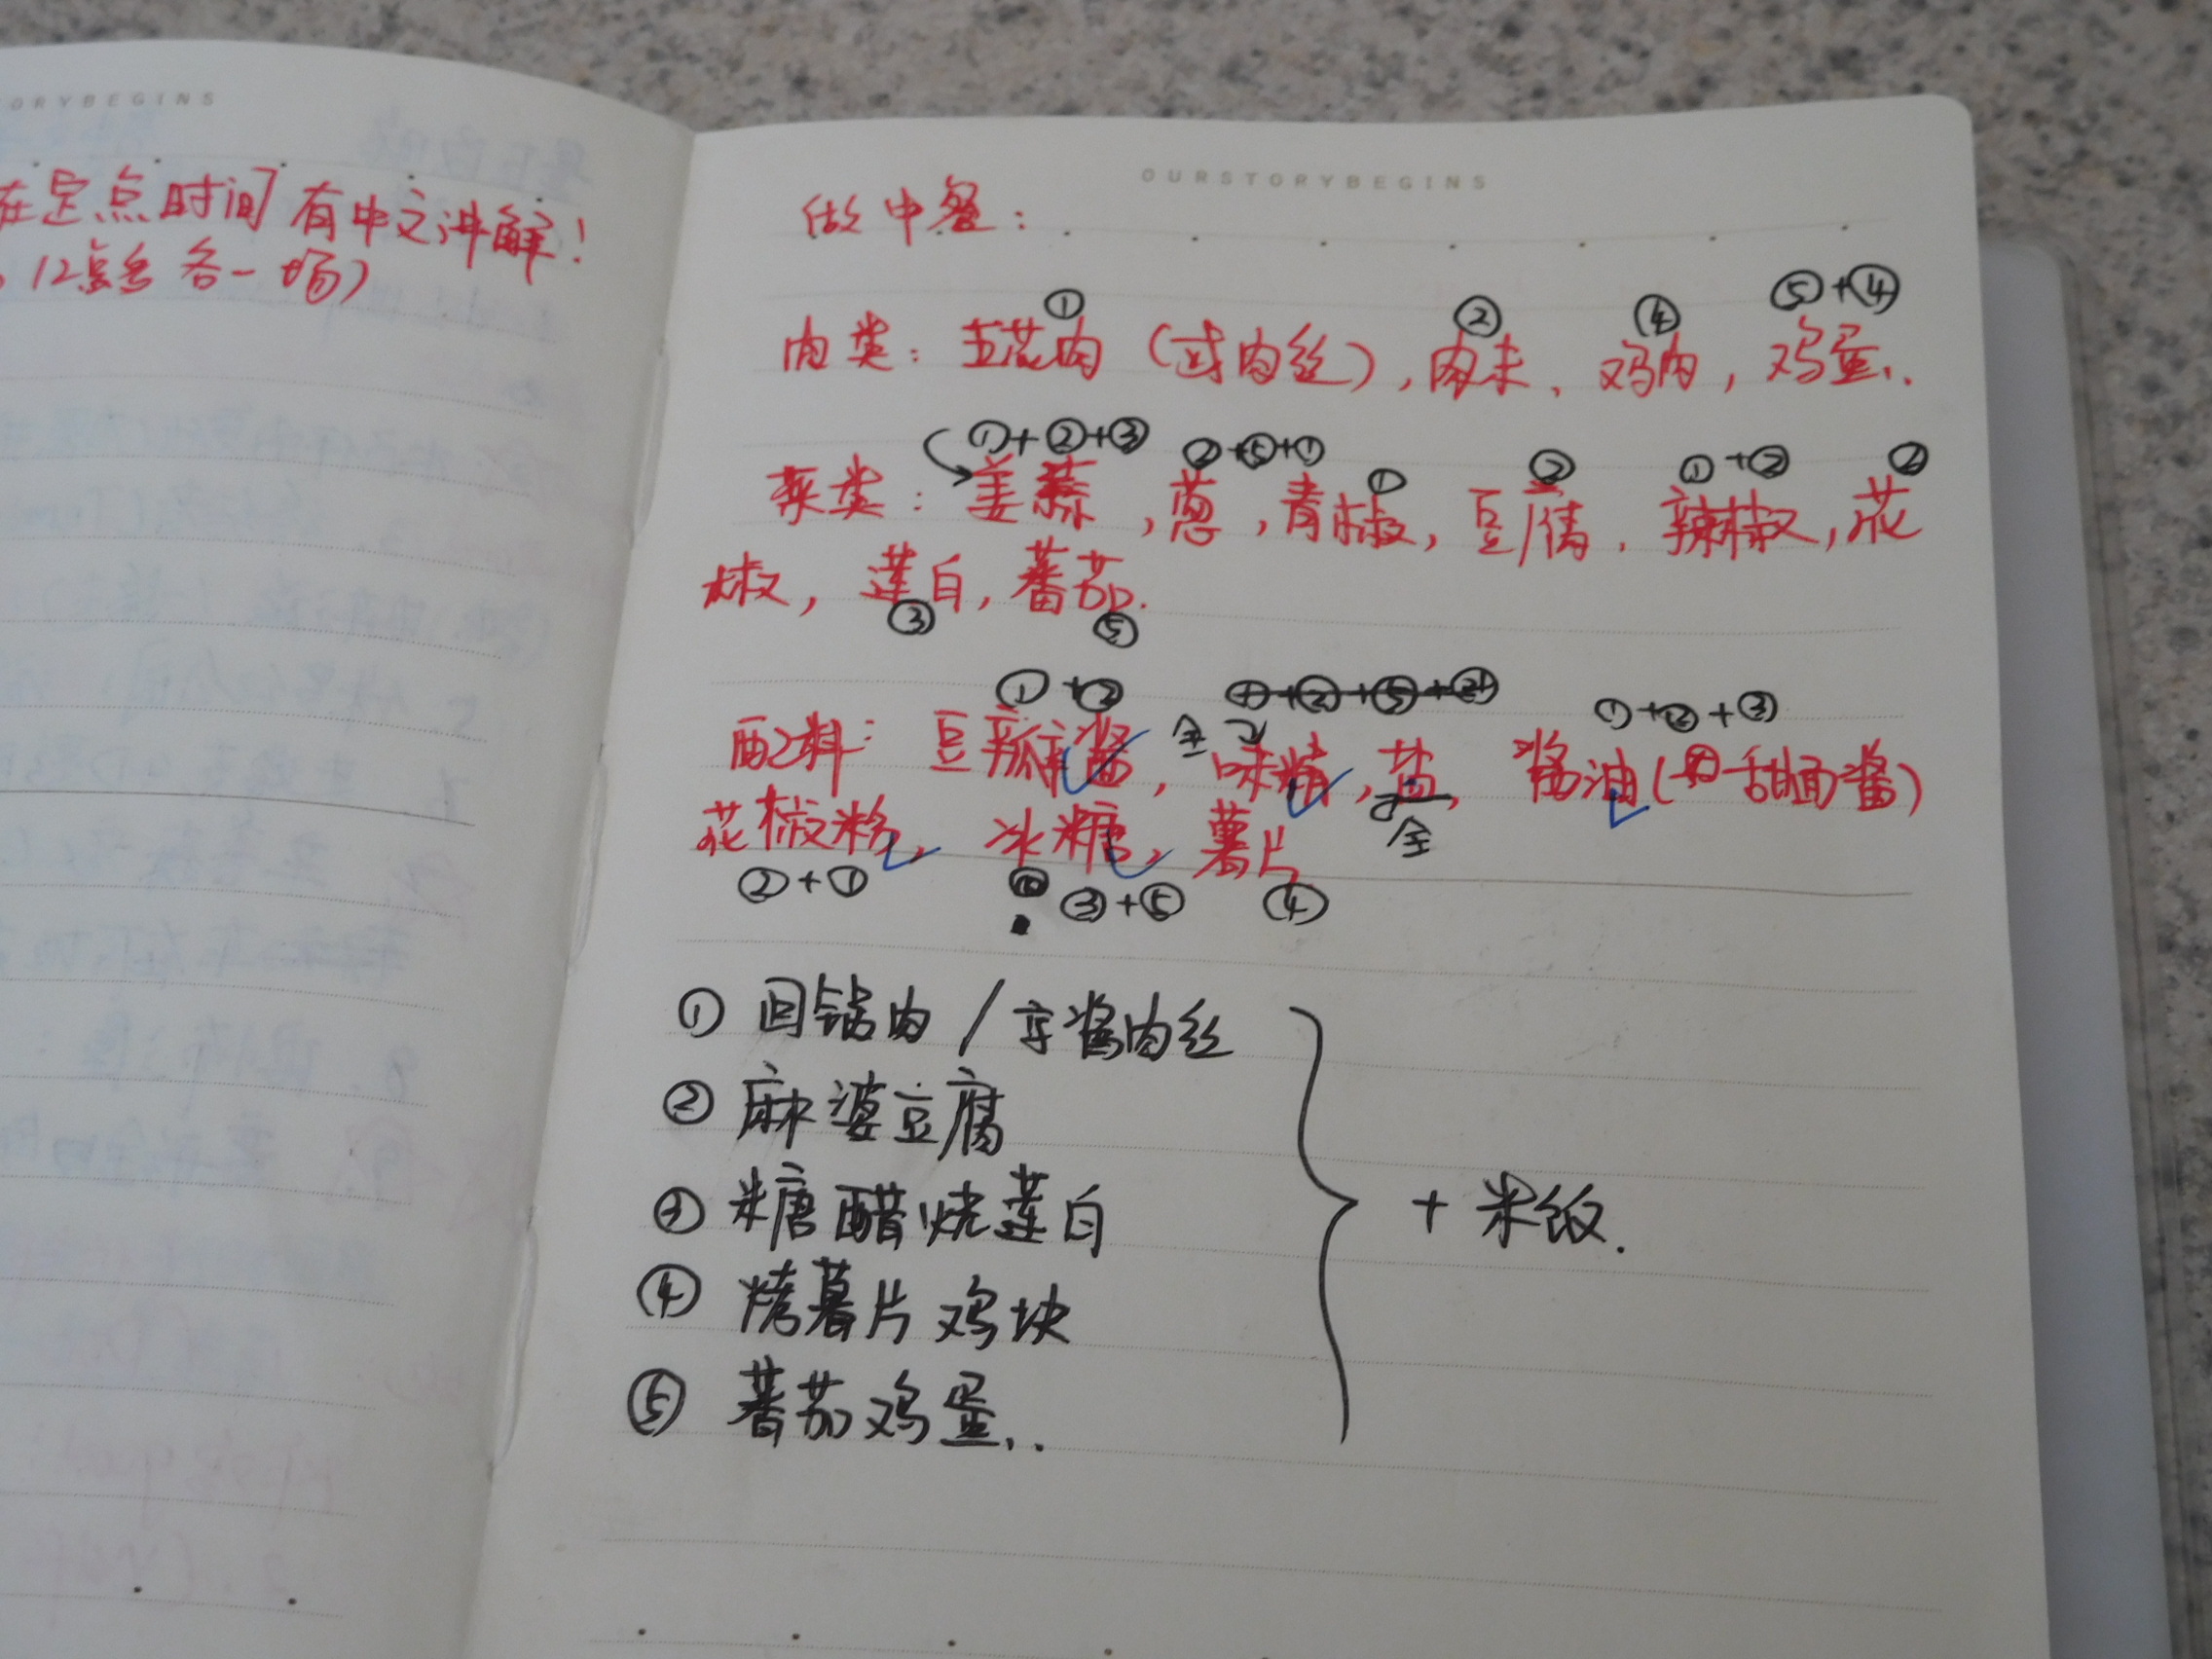 ORYBEGINS
在定点时间有中文讲解!
12点各一场)
OURSTORYBEGINS
做中餐:
① ② ④ ⑤+④
肉类: 五花肉 (或肉丝), 肉末, 鸡肉, 鸡蛋..
①+②+③ ②+⑤+① ① ② ①+② ②
菜类: 姜蒜, 葱, 青椒, 豆腐, 辣椒, 花
椒, 莲白, 蕃茄.
③ ⑤
①+② ①+②+⑤+ ①+②+③
配料: 豆瓣酱, 全 味精, 盐, 酱油(甜面酱)
花椒粉, 冰糖, 薯片 全
②+① ③+⑤ ④
① 回锅肉 / 京酱肉丝
② 麻婆豆腐
③ 糖醋烧莲白
+ 米饭.
④ 烤薯片鸡块
⑤ 蕃茄鸡蛋..